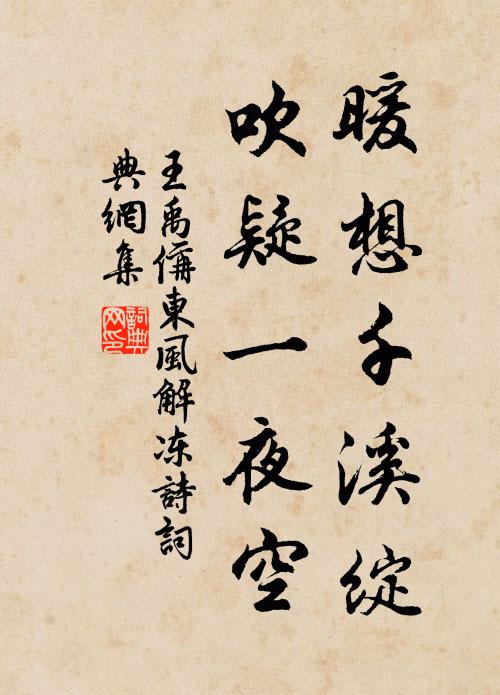 暖想千溪綻
吹疑一夜空
王禹偁東風解冻詩詞
典網集
詞典
网印